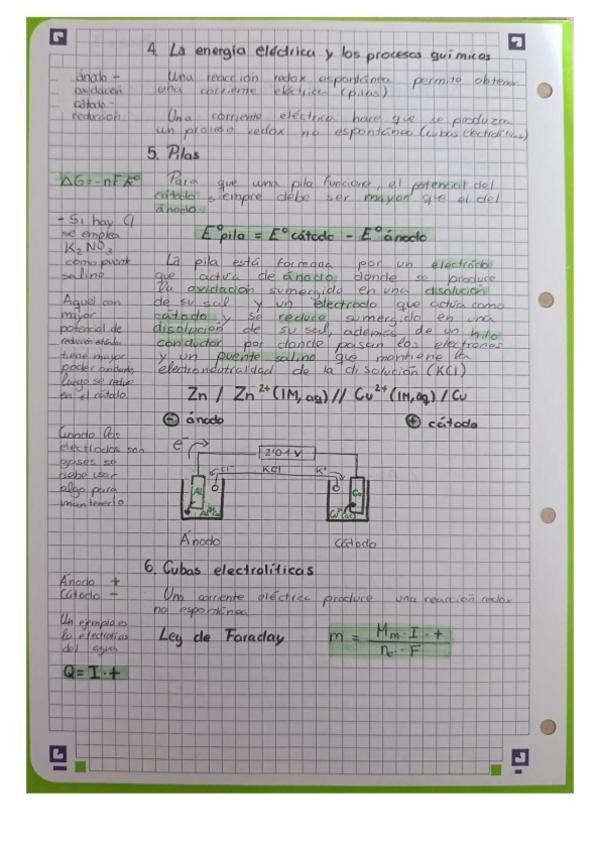 4. La energía eléctrica y los procesos químicos
ánodo -
oxidación
cátodo -
reducción
Una reacción redox espontánea permite obtener
una corriente eléctrica (pilas)
Una corriente eléctrica hace que se produzca
un proceso redox no espontáneo (cubas electrolíticas)
5. Pilas
ΔG = -nFE°
Para que una pila funcione, el potencial del
cátodo siempre debe ser mayor que el del
ánodo.
E°pila = E°cátodo - E°ánodo
- Si hay Cl
se emplea
K₂NO₃
como puente
salino
La pila está formada por un electrodo
que actúa de ánodo donde se produce
la oxidación sumergido en una disolución
de su sal y un electrodo que actúa como
cátodo y se reduce sumergido en una
disolución de su sal, además de un hilo
conductor por donde pasan los electrones
y un puente salino que mantiene la
electroneutralidad de la disolución (KCl)
Aquel con
mayor
potencial de
reducción
tiene mayor
poder oxidante,
luego se reduce
en el cátodo
Zn / Zn²⁺(1M, aq) // Cu²⁺(1M, aq) / Cu
⊖ ánodo
⊕ cátodo
Cuando los
electrodos son
gases se
debe usar
algo para
mantenerlo
e⁻
2'01 V
Cl⁻ KCl K⁺
Al
Ánodo
Cátodo
6. Cubas electrolíticas
Ánodo +
Cátodo -
Una corriente eléctrica produce una reacción redox
no espontánea
Un ejemplo es
la electrólisis
del agua
Ley de Faraday
m = Mm · I · t / ne⁻ · F
Q = I · t